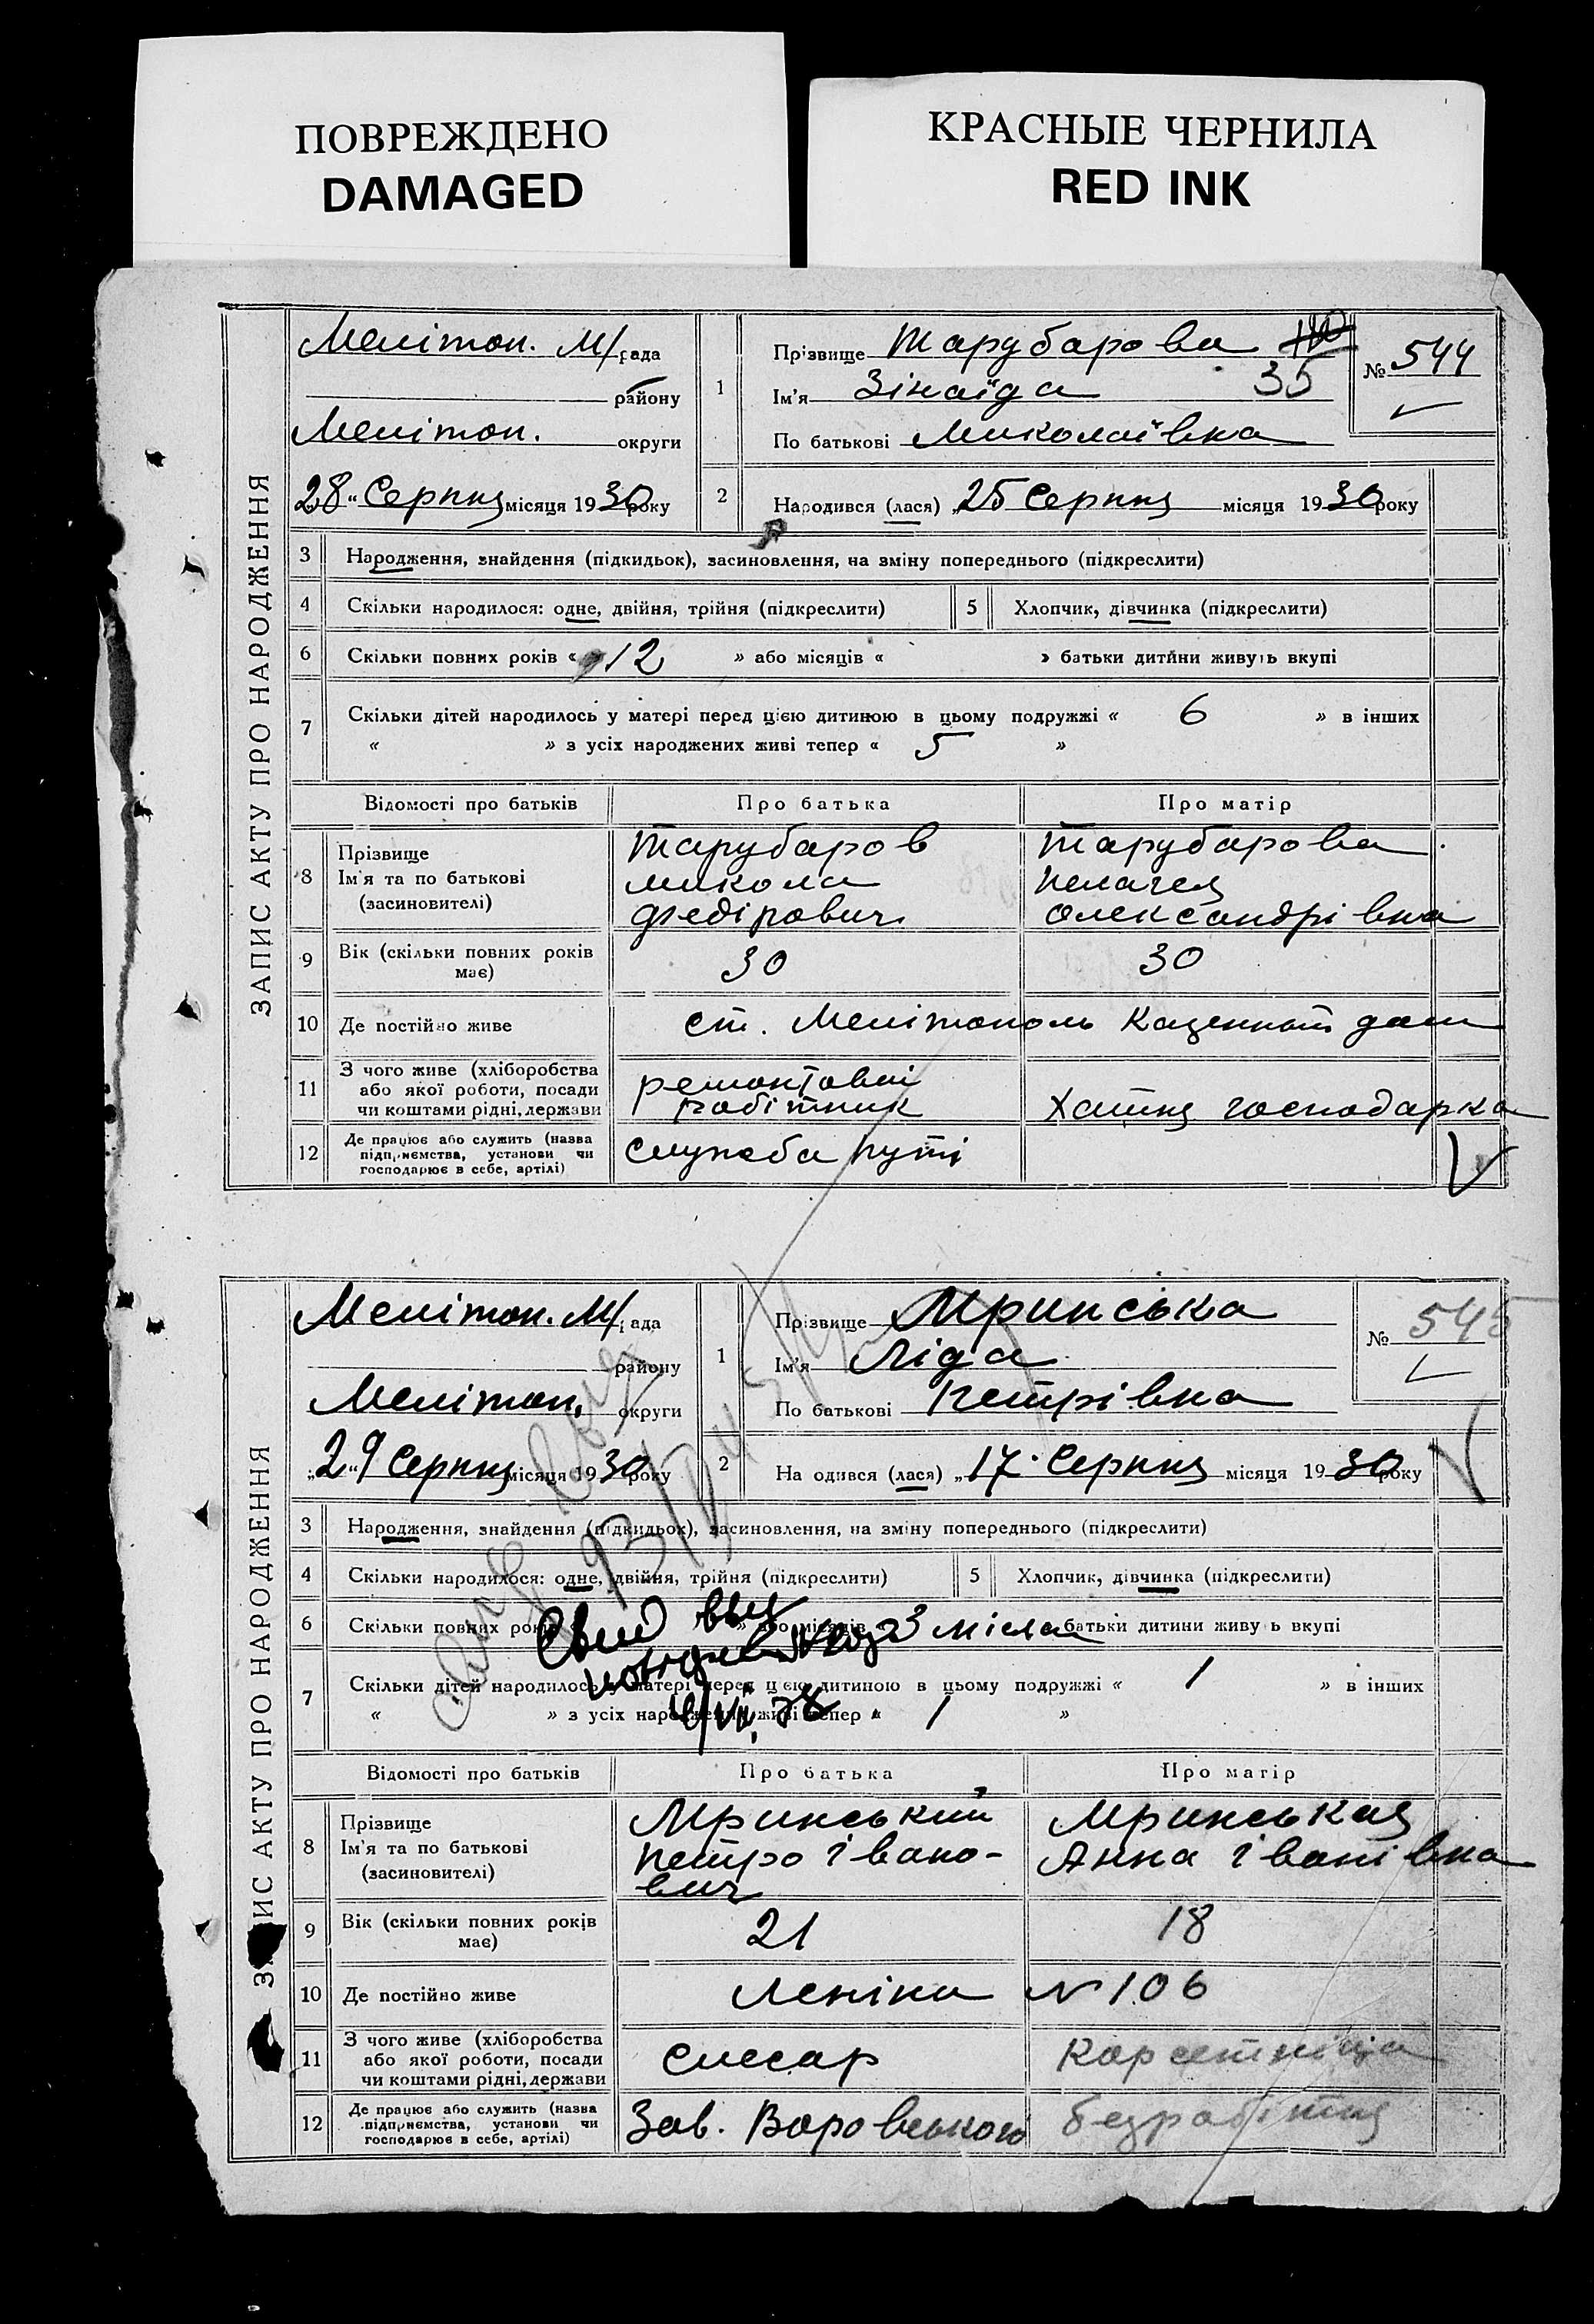 ПОВРЕЖДЕНО
DAMAGED
КРАСНЫЕ ЧЕРНИЛА
RED INK
ЗАПИС АКТУ ПРО НАРОДЖЕННЯ
Мелітоп. М/рада
району
Мелітоп. округи
28 „ Серпня місяця 1930 року
1
Прізвище Тарубарова
Ім'я Зінаїда 35
По батькові Миколаївна
№ 544
2 Народився (лася) „25 Серпня місяця 1930 року
3 Народження, знайдення (підкидьок), засиновлення, на зміну попереднього (підкреслити)
4 Скільки народилося: одне, двійня, трійня (підкреслити) 5 Хлопчик, дівчинка (підкреслити)
6 Скільки повних років « 12 » або місяців « » батьки дитини живуть вкупі
7 Скільки дітей народилось у матері перед цією дитиною в цьому подружжі « 6 » в інших
« » з усіх народжених живі тепер « 5 »
Відомості про батьків Про батька Про матір
8 Прізвище Ім'я та по батькові (засиновителі)
Тарубаров Микола Федірович
Тарубарова Пелагея Олександрівна
9 Вік (скільки повних років має) 30 30
10 Де постійно живе ст. Мелітополь Казенный дом
11 З чого живе (хліборобства або якої роботи, посади чи коштами рідні, держави
ремонтовий робітник
Хатня господарка
12 Де працює або служить (назва підприємства, установи чи господарює в себе, артілі)
Служба путі
ЗАПИС АКТУ ПРО НАРОДЖЕННЯ
Мелітоп. М/рада
району
Мелітоп. округи
„29 Серпня місяця 1930 року
1
Прізвище Мринська
Ім'я Ліда
По батькові Петрівна
№ 545
2 Народився (лася) „17 Серпня місяця 1930 року
3 Народження, знайдення (підкидьок), засиновлення, на зміну попереднього (підкреслити)
4 Скільки народилося: одне, двійня, трійня (підкреслити) 5 Хлопчик, дівчинка (підкреслити)
6 Скільки повних років » або місяців 3 місяц батьки дитини живуть вкупі
7 Скільки дітей народилось у матері перед цією дитиною в цьому подружжі « 1 » в інших
« » з усіх народжених живі тепер « 1 »
Відомості про батьків Про батька Про матір
8 Прізвище Ім'я та по батькові (засиновителі)
Мринський Петро Івано-
вич
Мринськая Анна Іванівна
9 Вік (скільки повних років має) 21 18
10 Де постійно живе Леніна N 106
11 З чого живе (хліборобства або якої роботи, посади чи коштами рідні, держави
слесар
Карсетніца
12 Де працює або служить (назва підприємства, установи чи господарює в себе, артілі)
Зав. Воровського
безработня